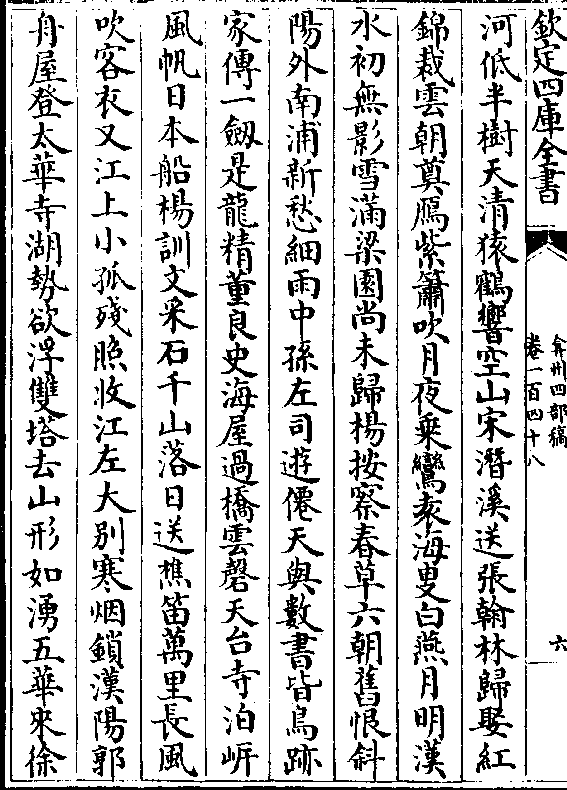 欽定四庫全書
弇州四部稿
卷一百四十八
六
河低半樹天清猿鶴響空山宋潛溪送張翰林歸娶紅
錦裁雲朝奠鴈紫簫吹月夜乗鸞袁海叟白燕月明漢
水初無影雪滿梁園尚未歸楊按察春草六朝舊恨斜
陽外南浦新愁細雨中孫左司遊僊天與數書皆鳥跡
家傳一劔是龍精董良史海屋過橋雲磬天台寺泊㟁
風帆日本船楊訓文采石千山落日送樵笛萬里長風
吹客衣又江上小孤殘照收江左大别寒烟鎖漢陽郭
舟屋登太華寺湖勢欲浮雙塔去山形如湧五華來徐